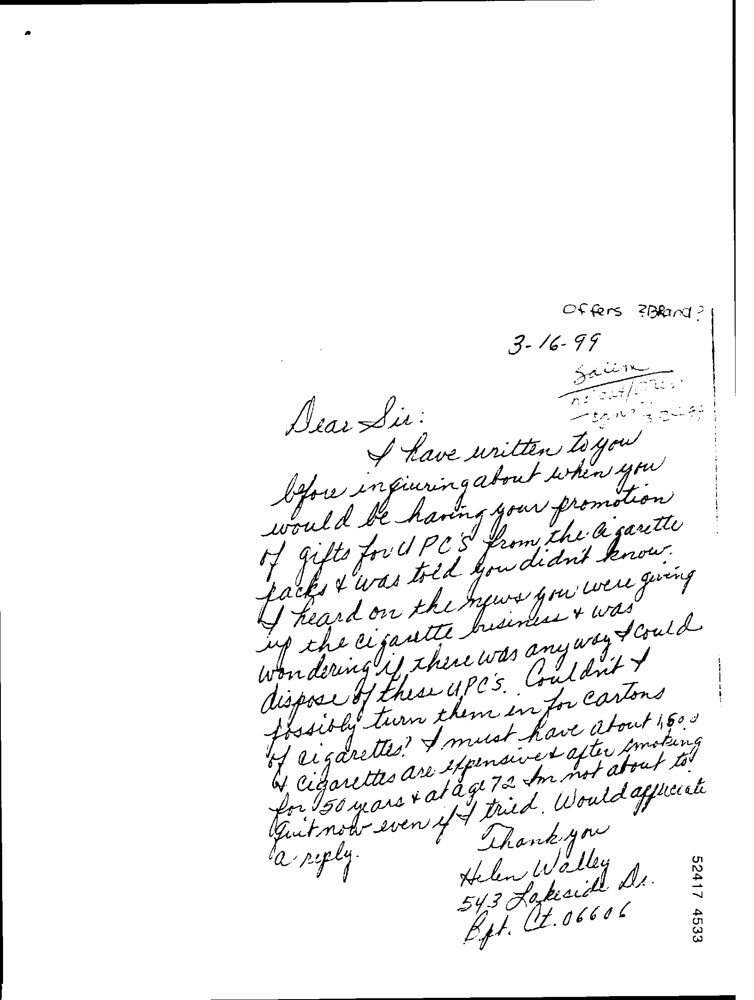 Offers ?Brand?
3-16-99
Dear Sir:
I have written to you
before inquiring about when you
would be having your promotion
of gifts for UPC'S from the cigarette
packs & was told you didn't know.
I heard on the news you were giving
up the cigarette business & was
wondering if there was anyway I could
dispose of these UPC's. Couldn't I
possibly turn them in for cartons
of cigarettes? I must have about 1,500
& cigarettes are expensive & after smoking
for 50 years & at age 72 Im not about to
quit now even if I tried. Would appreciate
a reply.
Thank you
Helen Walley
543 Lakeside Dr.
Bpt. Ct. 06606
52417 4533